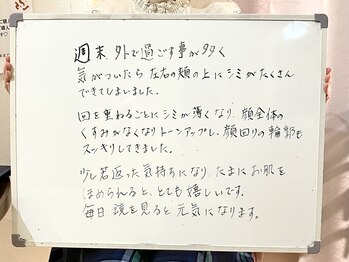 週末、外で過ごす事が多く
気がついたら 左右の頬の上にシミがたくさん
できてしまいました。
回を重ねるごとにシミが薄くなり、顔全体の
くすみがなくなりトーンアップし、顔回りの輪郭も
スッキリしてきました。
少し若返った気持ちになり たまにお肌を
ほめられると、とても嬉しいです。
毎日 鏡を見ると 元気になります。